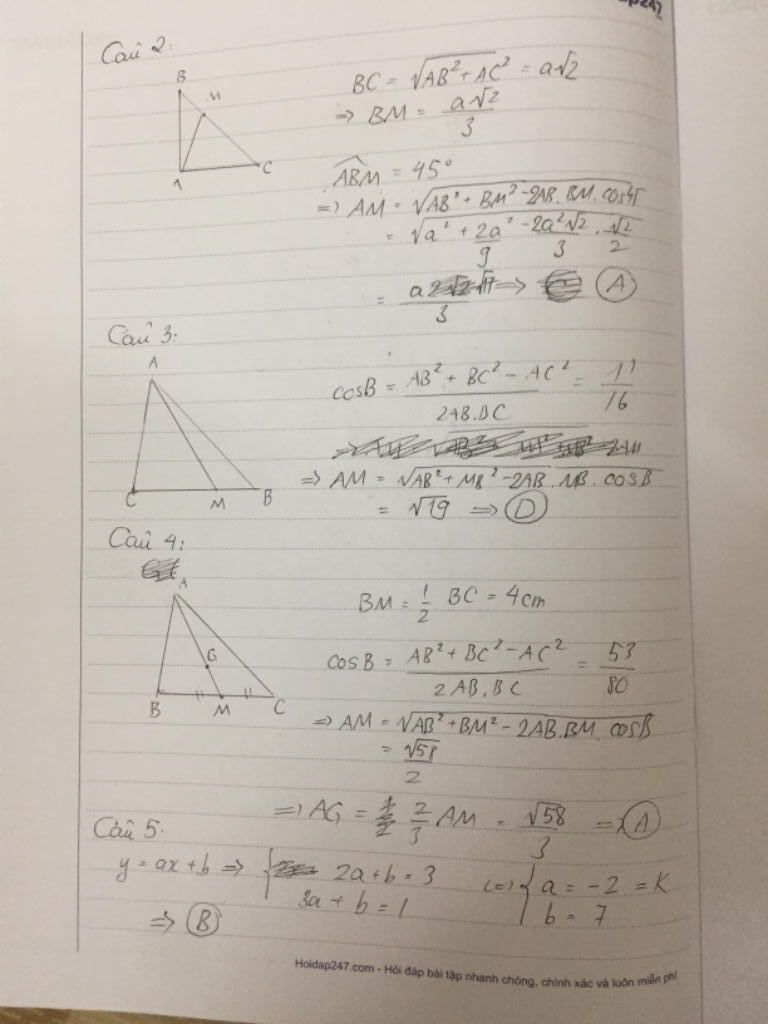 Câu 2:
B
M
A
C
BC = √(AB² + AC²) = a√2
=> BM = a√2/3
ABM = 45°
=> AM = √(AB² + BM² - 2AB.BM.cos45
= √(a² + 2a²/9 - 2a²√2/3 . √2/2
= a√17/3 => A
Câu 3:
A
C
M
B
cosB = (AB² + BC² - AC²)/(2AB.BC) = 11/16
=> AM = √(AB² + MB² - 2AB.MB.cosB
= √19 => D
Câu 4:
A
G
B
M
C
BM = 1/2 BC = 4cm
cosB = (AB² + BC² - AC²)/(2AB.BC) = 53/80
=> AM = √(AB² + BM² - 2AB.BM.cosB
= √58/2
=> AG = 2/3 AM = √58/3 => A
Câu 5.
y = ax + b => { 2a + b = 3 <=> { a = -2 = K
3a + b = 1 b = 7
=> B
Hoidap247.com - Hỏi đáp bài tập nhanh chóng, chính xác và luôn miễn phí